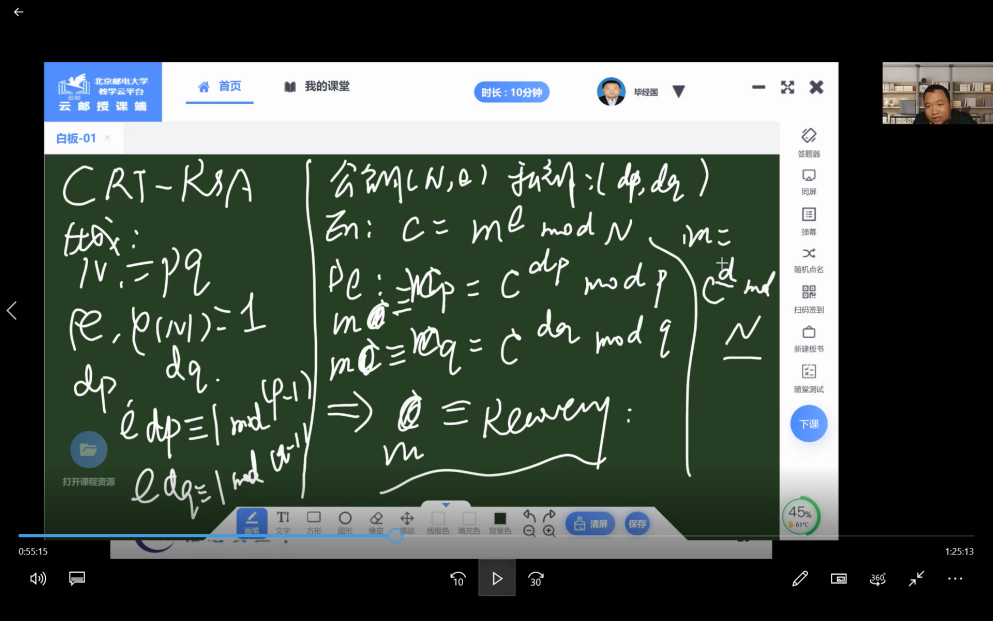 北京邮电大学
教学云平台
云邮授课端
首页
我的课堂
时长：10分钟
毕经国
白板-01 ×
CRT-RSA
N=pq
e, φ(N)=1
dp dq.
e dp≡1 mod (p-1)
e dq≡1 mod (q-1)
公钥(N,e) 私钥:(dp,dq)
En: C = m^e mod N
De: mp = C^dp mod p
m ≡
m ≡ mq = C^dq mod q
⇒ m ≡ Recovery:
m=
C^d mod
N
答题器
同屏
弹幕
随机点名
扫码签到
新建板书
随堂测试
下课
打开课程资源
画笔
文字
方形
圆形
橡皮
移动
线框色
填充色
背景色
清屏
保存
45%
61°C
0:55:15
1:25:13
10
30
360°